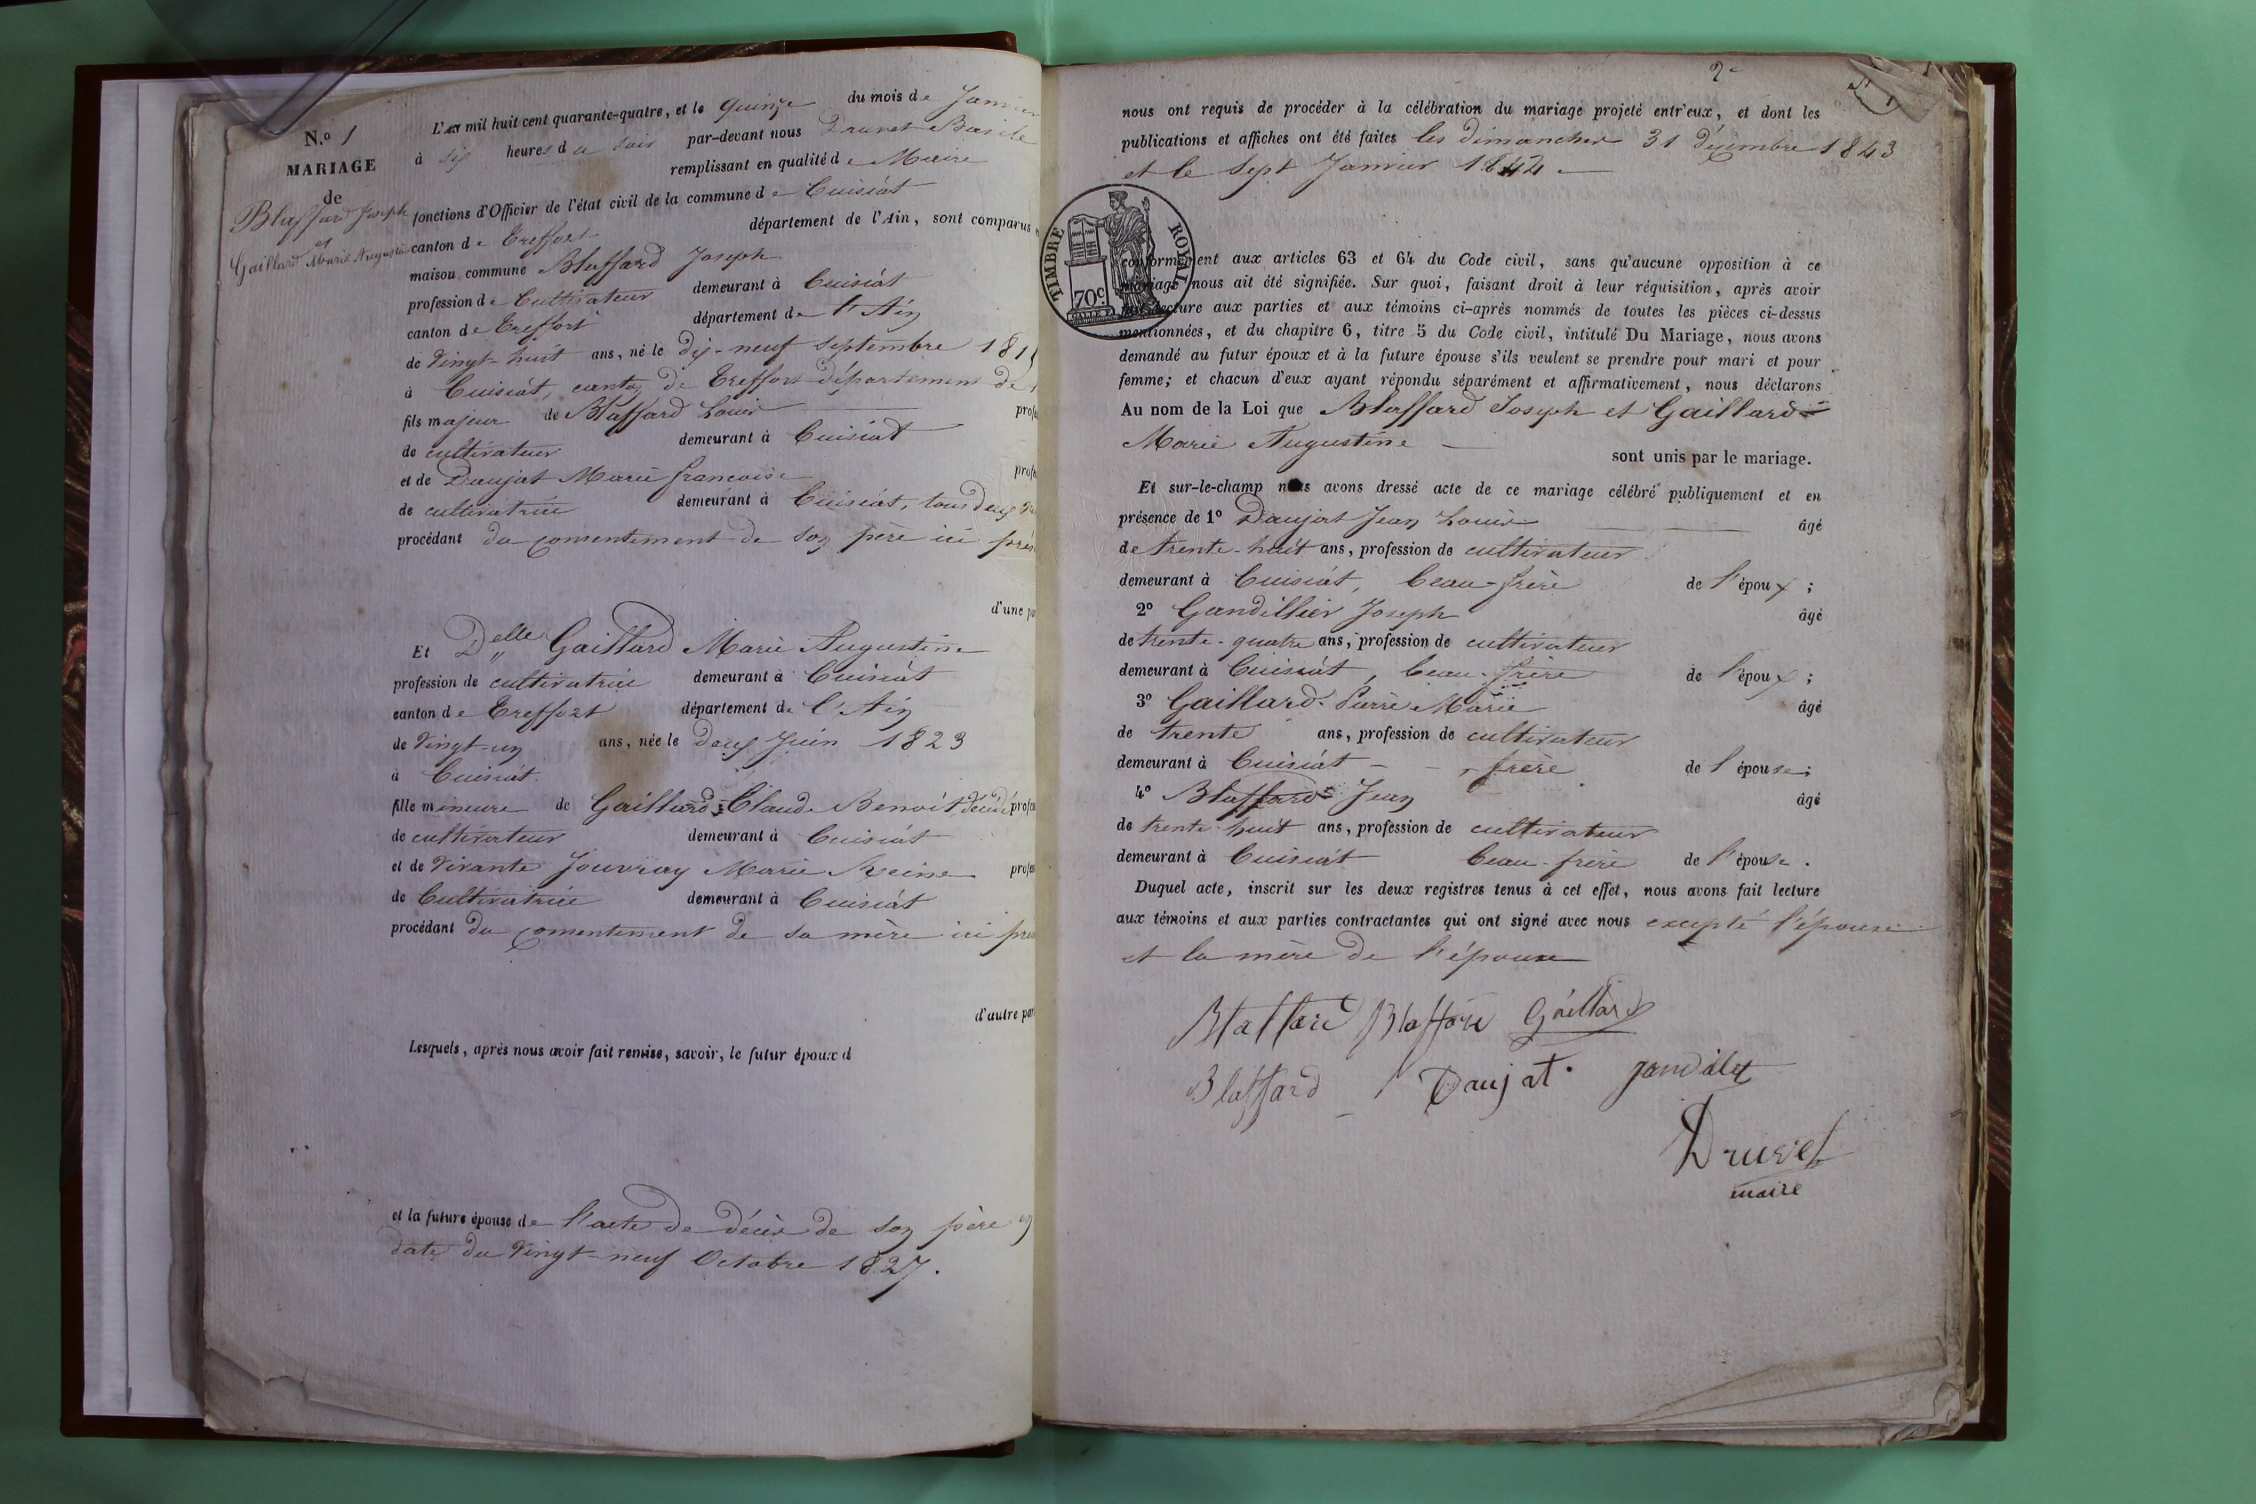 N.º 1
MARIAGE
de
Blaffard Joseph
et
Gaillard Marie Augustine
L'an mil huit cent quarante-quatre, et le quinze du mois de Janvier
à six heures du soir par-devant nous Druvet Basile
remplissant en qualité de Maire
fonctions d'Officier de l'état civil de la commune de Cuisiat
canton de Treffort département de l'Ain, sont comparus
maison commune Blaffard Joseph
profession de Cultivateur demeurant à Cuisiat
canton de Treffort département de l'Ain
de vingt-huit ans, né le dix-neuf septembre 181
à Cuisiat, canton de Treffort département de
fils majeur de Blaffard Louis profes
de cultivateur demeurant à Cuisiat
et de Daujat Marie françoise profes
de cultivatrice demeurant à Cuisiat, tous deux
procédant du consentement de son père ici prés
d'une par
Et Delle Gaillard Marie Augustine
profession de cultivatrice demeurant à Cuisiat
canton de Treffort département de l'Ain
de vingt-un ans, née le deux Juin 1823
à Cuisiat
fille mineure de Gaillard Claude Benoit décédé profes
de cultivateur demeurant à Cuisiat
et de vivante Jouvray Marie Reine profes
de Cultivatrice demeurant à Cuisiat
procédant du consentement de sa mère ici pré
d'autre par
Lesquels, après nous avoir fait remise, savoir, le futur époux d
et la future épouse de l'acte de décès de son père en
date du vingt-neuf Octobre 1827.
2e
nous ont requis de procéder à la célébration du mariage projeté entr'eux, et dont les
publications et affiches ont été faites les dimanches 31 décembre 1843
et le sept Janvier 1844
TIMBRE ROYAL
70c.
conformément aux articles 63 et 64 du Code civil, sans qu'aucune opposition à ce
mariage nous ait été signifiée. Sur quoi, faisant droit à leur réquisition, après avoir
fait lecture aux parties et aux témoins ci-après nommés de toutes les pièces ci-dessus
mentionnées, et du chapitre 6, titre 5 du Code civil, intitulé Du Mariage, nous avons
demandé au futur époux et à la future épouse s'ils veulent se prendre pour mari et pour
femme; et chacun d'eux ayant répondu séparément et affirmativement, nous déclarons
Au nom de la Loi que Blaffard Joseph et Gaillard
Marie Augustine
sont unis par le mariage.
Et sur-le-champ nous avons dressé acte de ce mariage célébré publiquement et en
présence de 1º Daujat Jean Louis âgé
de trente-huit ans, profession de cultivateur
demeurant à Cuisiat, beau-frère de l'époux;
2º Gandillier Joseph âgé
de trente-quatre ans, profession de cultivateur
demeurant à Cuisiat, beau-frère de l'époux;
3º Gaillard Pierre Marie âgé
de trente ans, profession de cultivateur
demeurant à Cuisiat, frère de l'épouse;
4º Blaffard Jean âgé
de trente huit ans, profession de cultivateur
demeurant à Cuisiat beau-frère de l'épouse.
Duquel acte, inscrit sur les deux registres tenus à cet effet, nous avons fait lecture
aux témoins et aux parties contractantes qui ont signé avec nous excepté l'épouse
et la mère de l'épouse
Blaffard Blaffard Gaillard
Blaffard Daujat
Druvet
maire